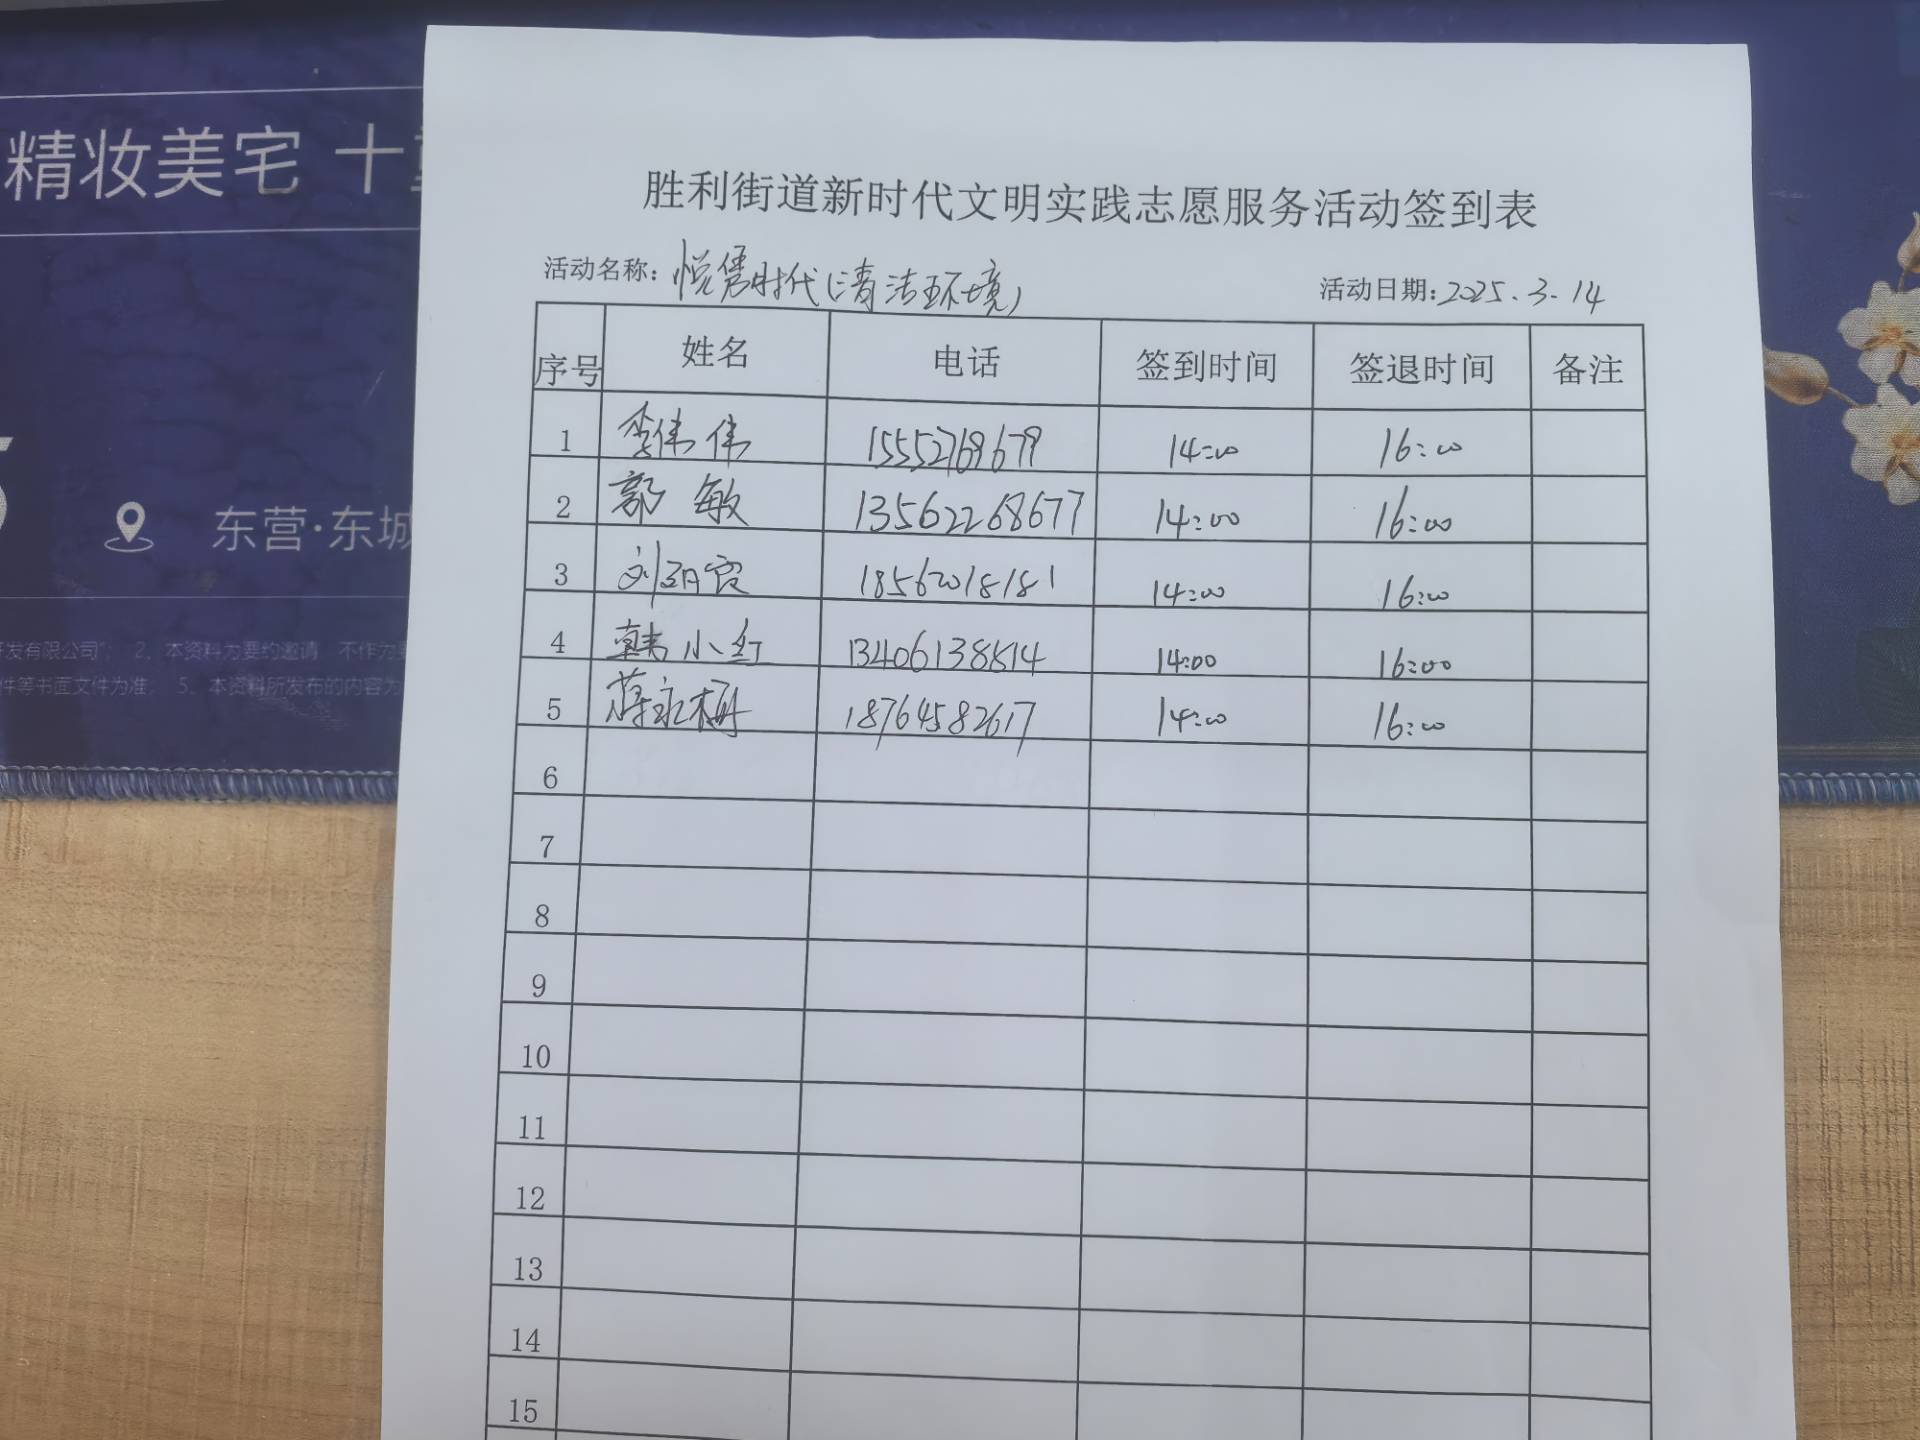 精妆美宅 十
东营·东城
开发有限公司"； 2、本资料为要约邀请 不作为要
件等书面文件为准； 5、本资料所发布的内容为
胜利街道新时代文明实践志愿服务活动签到表
活动名称：悦隽时代（清洁环境） 活动日期：2025.3.14
序号 姓名 电话 签到时间 签退时间 备注
1 李伟伟 15552769679 14:00 16:00
2 郭敏 13562268677 14:00 16:00
3 刘 18562018181 14:00 16:00
4 韩小红 13406138514 14:00 16:00
5 蒋永梅 18764582617 14:00 16:00
6
7
8
9
10
11
12
13
14
15